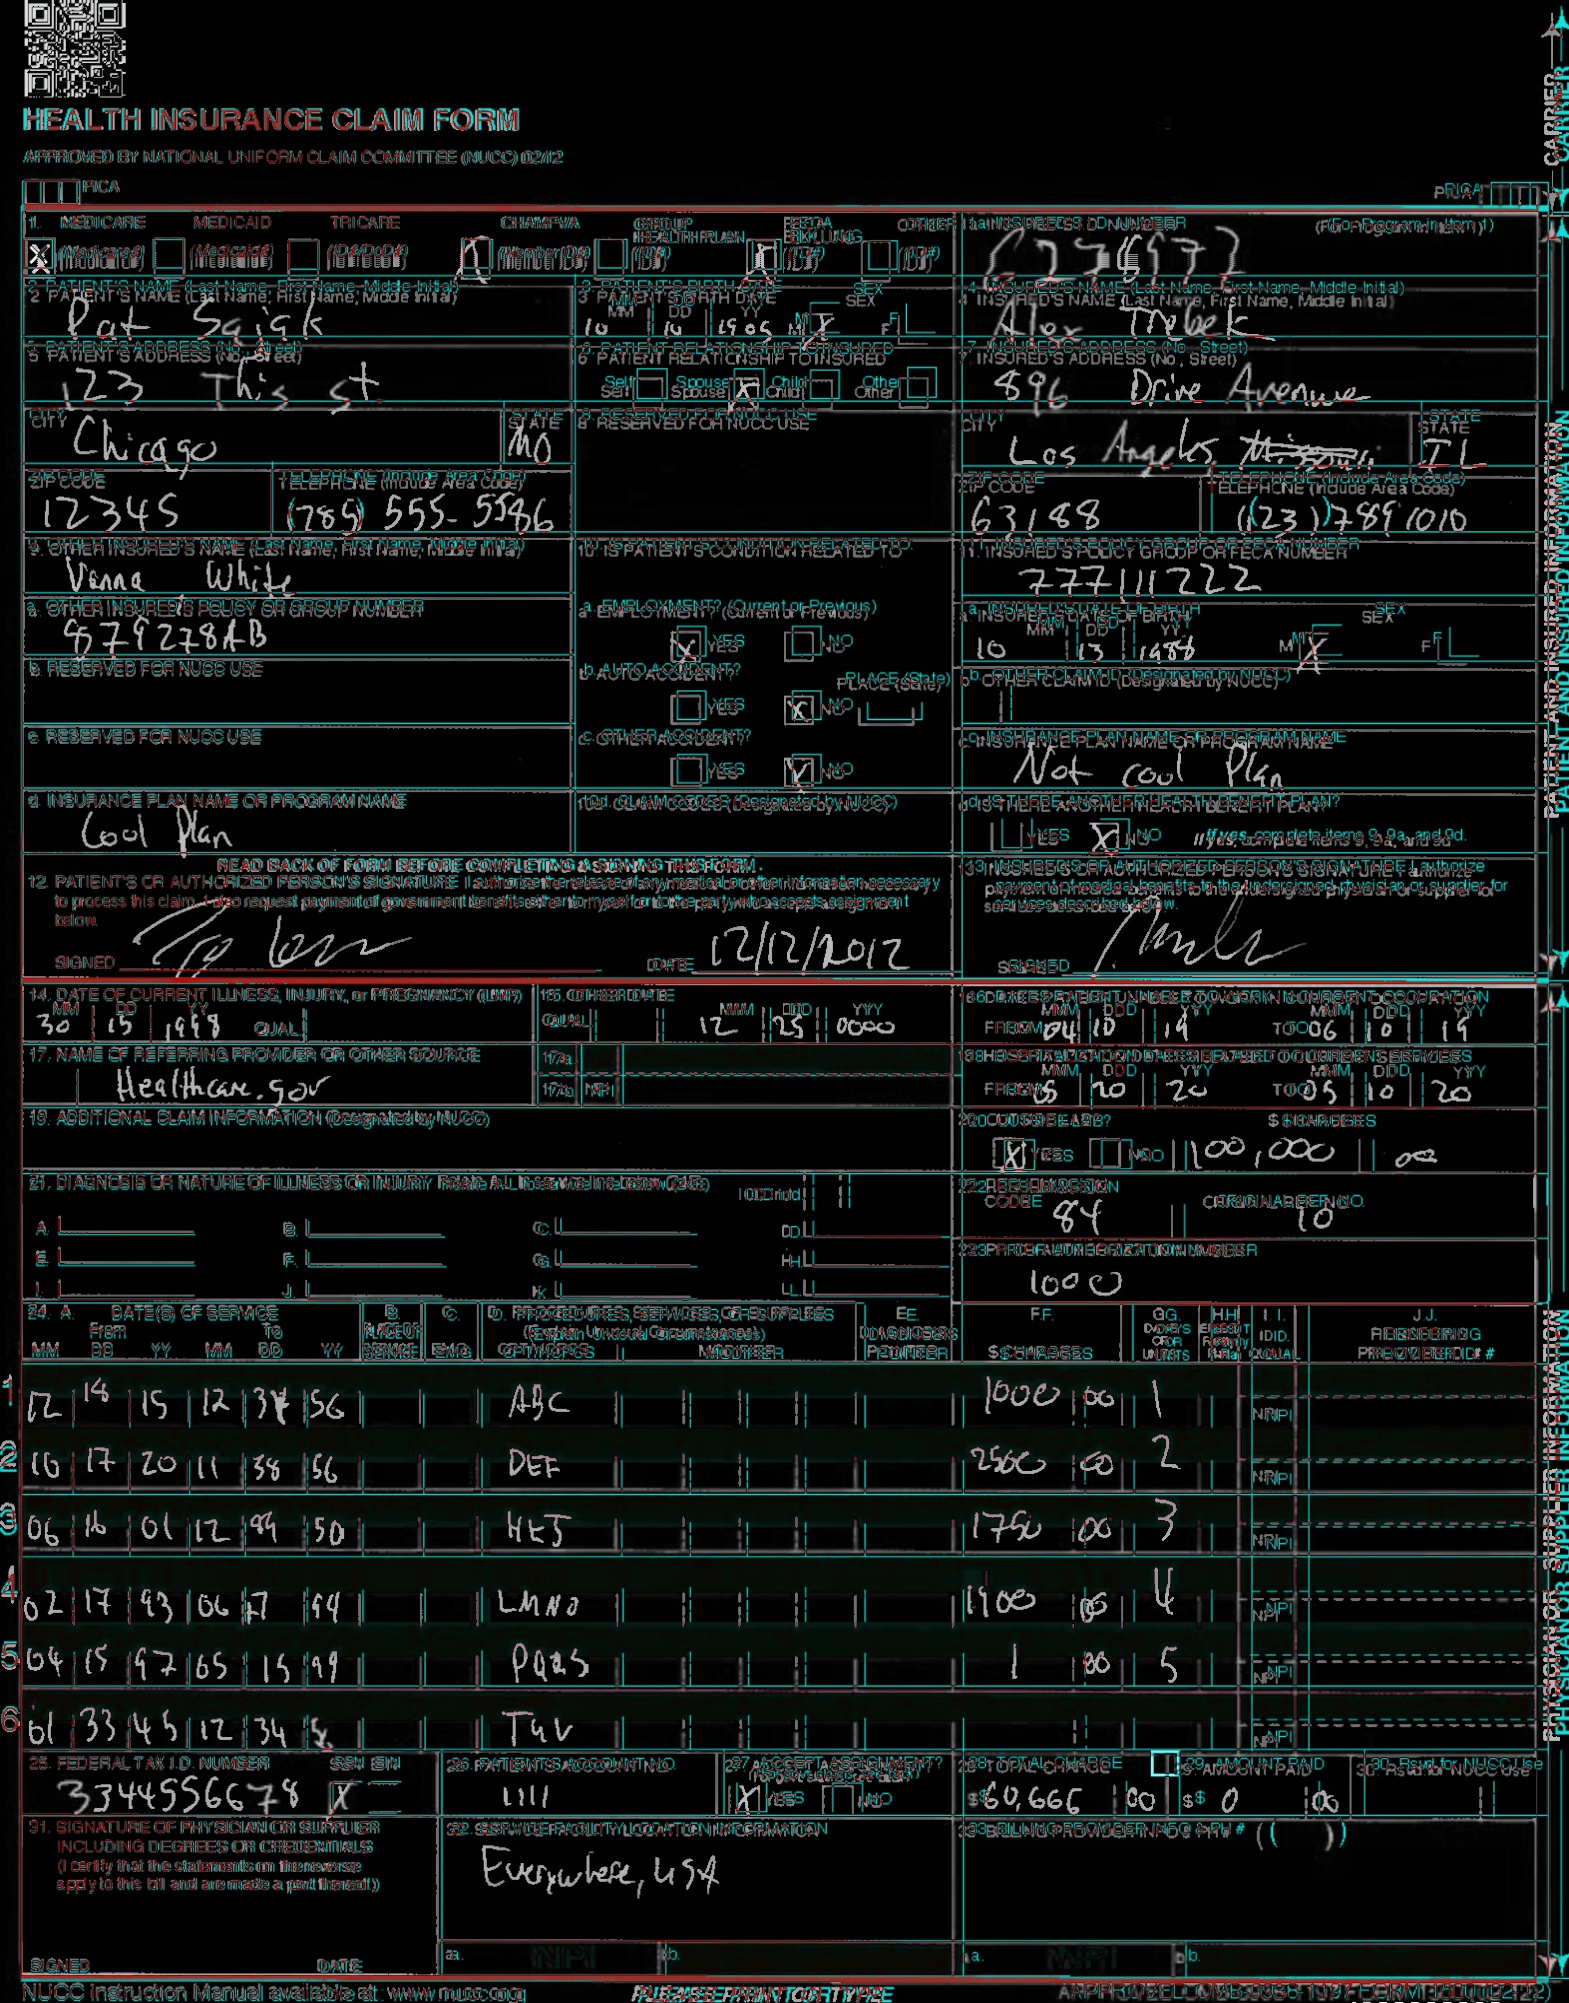 HEALTH INSURANCE CLAIM FORM
APPROVED BY NATIONAL UNIFORM CLAIM COMMITTEE (NUCC) 02/12
PICA
PICA
CARRIER
1. MEDICARE MEDICAID TRICARE CHAMPVA GROUP HEALTH PLAN FECA BLK LUNG OTHER
(Medicare#) (Medicaid#) (ID#/DoD#) (Member ID#) (ID#) (ID#) (ID#)
1a. INSURED'S I.D. NUMBER (For Program in Item 1)
2. PATIENT'S NAME (Last Name, First Name, Middle Initial)
Pat Sajak
3. PATIENT'S BIRTH DATE SEX
MM DD YY
10 10 1905 M X F
4. INSURED'S NAME (Last Name, First Name, Middle Initial)
Alex Trebek
5. PATIENT'S ADDRESS (No., Street)
123 This st.
6. PATIENT RELATIONSHIP TO INSURED
Self Spouse X Child Other
7. INSURED'S ADDRESS (No., Street)
896 Drive Avenue
CITY STATE
Chicago MO
8. RESERVED FOR NUCC USE
CITY STATE
Los Angeles, IL
ZIP CODE TELEPHONE (Include Area Code)
12345 (785) 555-5586
ZIP CODE TELEPHONE (Include Area Code)
63188 (123) 789 1010
9. OTHER INSURED'S NAME (Last Name, First Name, Middle Initial)
Vanna White
10. IS PATIENT'S CONDITION RELATED TO:
11. INSURED'S POLICY GROUP OR FECA NUMBER
777111222
a. OTHER INSURED'S POLICY OR GROUP NUMBER
879278AB
a. EMPLOYMENT? (Current or Previous)
X YES NO
a. INSURED'S DATE OF BIRTH SEX
MM DD YY
10 13 1988 M X F
b. RESERVED FOR NUCC USE
b. AUTO ACCIDENT? PLACE (State)
YES X NO
b. OTHER CLAIM ID (Designated by NUCC)
c. RESERVED FOR NUCC USE
c. OTHER ACCIDENT?
YES X NO
c. INSURANCE PLAN NAME OR PROGRAM NAME
Not cool Plan
d. INSURANCE PLAN NAME OR PROGRAM NAME
Cool Plan
10d. CLAIM CODES (Designated by NUCC)
d. IS THERE ANOTHER HEALTH BENEFIT PLAN?
YES X NO If yes, complete items 9, 9a, and 9d.
READ BACK OF FORM BEFORE COMPLETING & SIGNING THIS FORM.
12. PATIENT'S OR AUTHORIZED PERSON'S SIGNATURE I authorize the release of any medical or other information necessary
to process this claim. I also request payment of government benefits either to myself or to the party who accepts assignment
below.
SIGNED DATE 12/12/2012
13. INSURED'S OR AUTHORIZED PERSON'S SIGNATURE I authorize
payment of medical benefits to the undersigned physician or supplier for
services described below.
SIGNED
PATIENT AND INSURED INFORMATION
14. DATE OF CURRENT ILLNESS, INJURY, or PREGNANCY (LMP)
MM DD YY
30 15 1998 QUAL.
15. OTHER DATE
QUAL. MM DD YY
12 25 0000
16. DATES PATIENT UNABLE TO WORK IN CURRENT OCCUPATION
MM DD YY MM DD YY
FROM 04 10 19 TO 06 10 19
17. NAME OF REFERRING PROVIDER OR OTHER SOURCE
Healthcare.gov
17a.
17b. NPI
18. HOSPITALIZATION DATES RELATED TO CURRENT SERVICES
MM DD YY MM DD YY
FROM 05 20 20 TO 05 10 20
19. ADDITIONAL CLAIM INFORMATION (Designated by NUCC)
20. OUTSIDE LAB? $ CHARGES
X YES NO 100,000
21. DIAGNOSIS OR NATURE OF ILLNESS OR INJURY Relate A-L to service line below (24E) ICD Ind.
A. B. C. D.
E. F. G. H.
I. J. K. L.
22. RESUBMISSION CODE ORIGINAL REF. NO.
84 10
23. PRIOR AUTHORIZATION NUMBER
1000
24. A. DATE(S) OF SERVICE B. PLACE OF SERVICE C. EMG D. PROCEDURES, SERVICES, OR SUPPLIES E. DIAGNOSIS POINTER
From To (Explain Unusual Circumstances)
MM DD YY MM DD YY CPT/HCPCS MODIFIER
F. $ CHARGES G. DAYS OR UNITS H. EPSDT Family Plan I. ID. QUAL. J. RENDERING PROVIDER ID. #
1 12 18 15 12 56 ABC 1000 00 1 NPI
2 10 17 20 11 38 56 DEF 2500 00 2 NPI
3 06 16 01 12 99 50 1750 00 3 NPI
4 02 17 93 06 17 94 LMNO 1900 00 4 NPI
5 04 15 97 05 15 99 PQRS 1 00 5 NPI
6 01 33 45 12 34 TUV NPI
25. FEDERAL TAX I.D. NUMBER SSN EIN
3344556678 X
26. PATIENT'S ACCOUNT NO.
1111
27. ACCEPT ASSIGNMENT?
X YES NO
28. TOTAL CHARGE
$ 60,666 00
29. AMOUNT PAID
$ 0 00
30. Rsvd for NUCC Use
31. SIGNATURE OF PHYSICIAN OR SUPPLIER
INCLUDING DEGREES OR CREDENTIALS
(I certify that the statements on the reverse
apply to this bill and are made a part thereof.)
SIGNED DATE
32. SERVICE FACILITY LOCATION INFORMATION
Everywhere, USA
a. NPI b.
33. BILLING PROVIDER INFO & PH # ( )
a. NPI b.
PHYSICIAN OR SUPPLIER INFORMATION
NUCC Instruction Manual available at: www.nucc.org
PLEASE PRINT OR TYPE